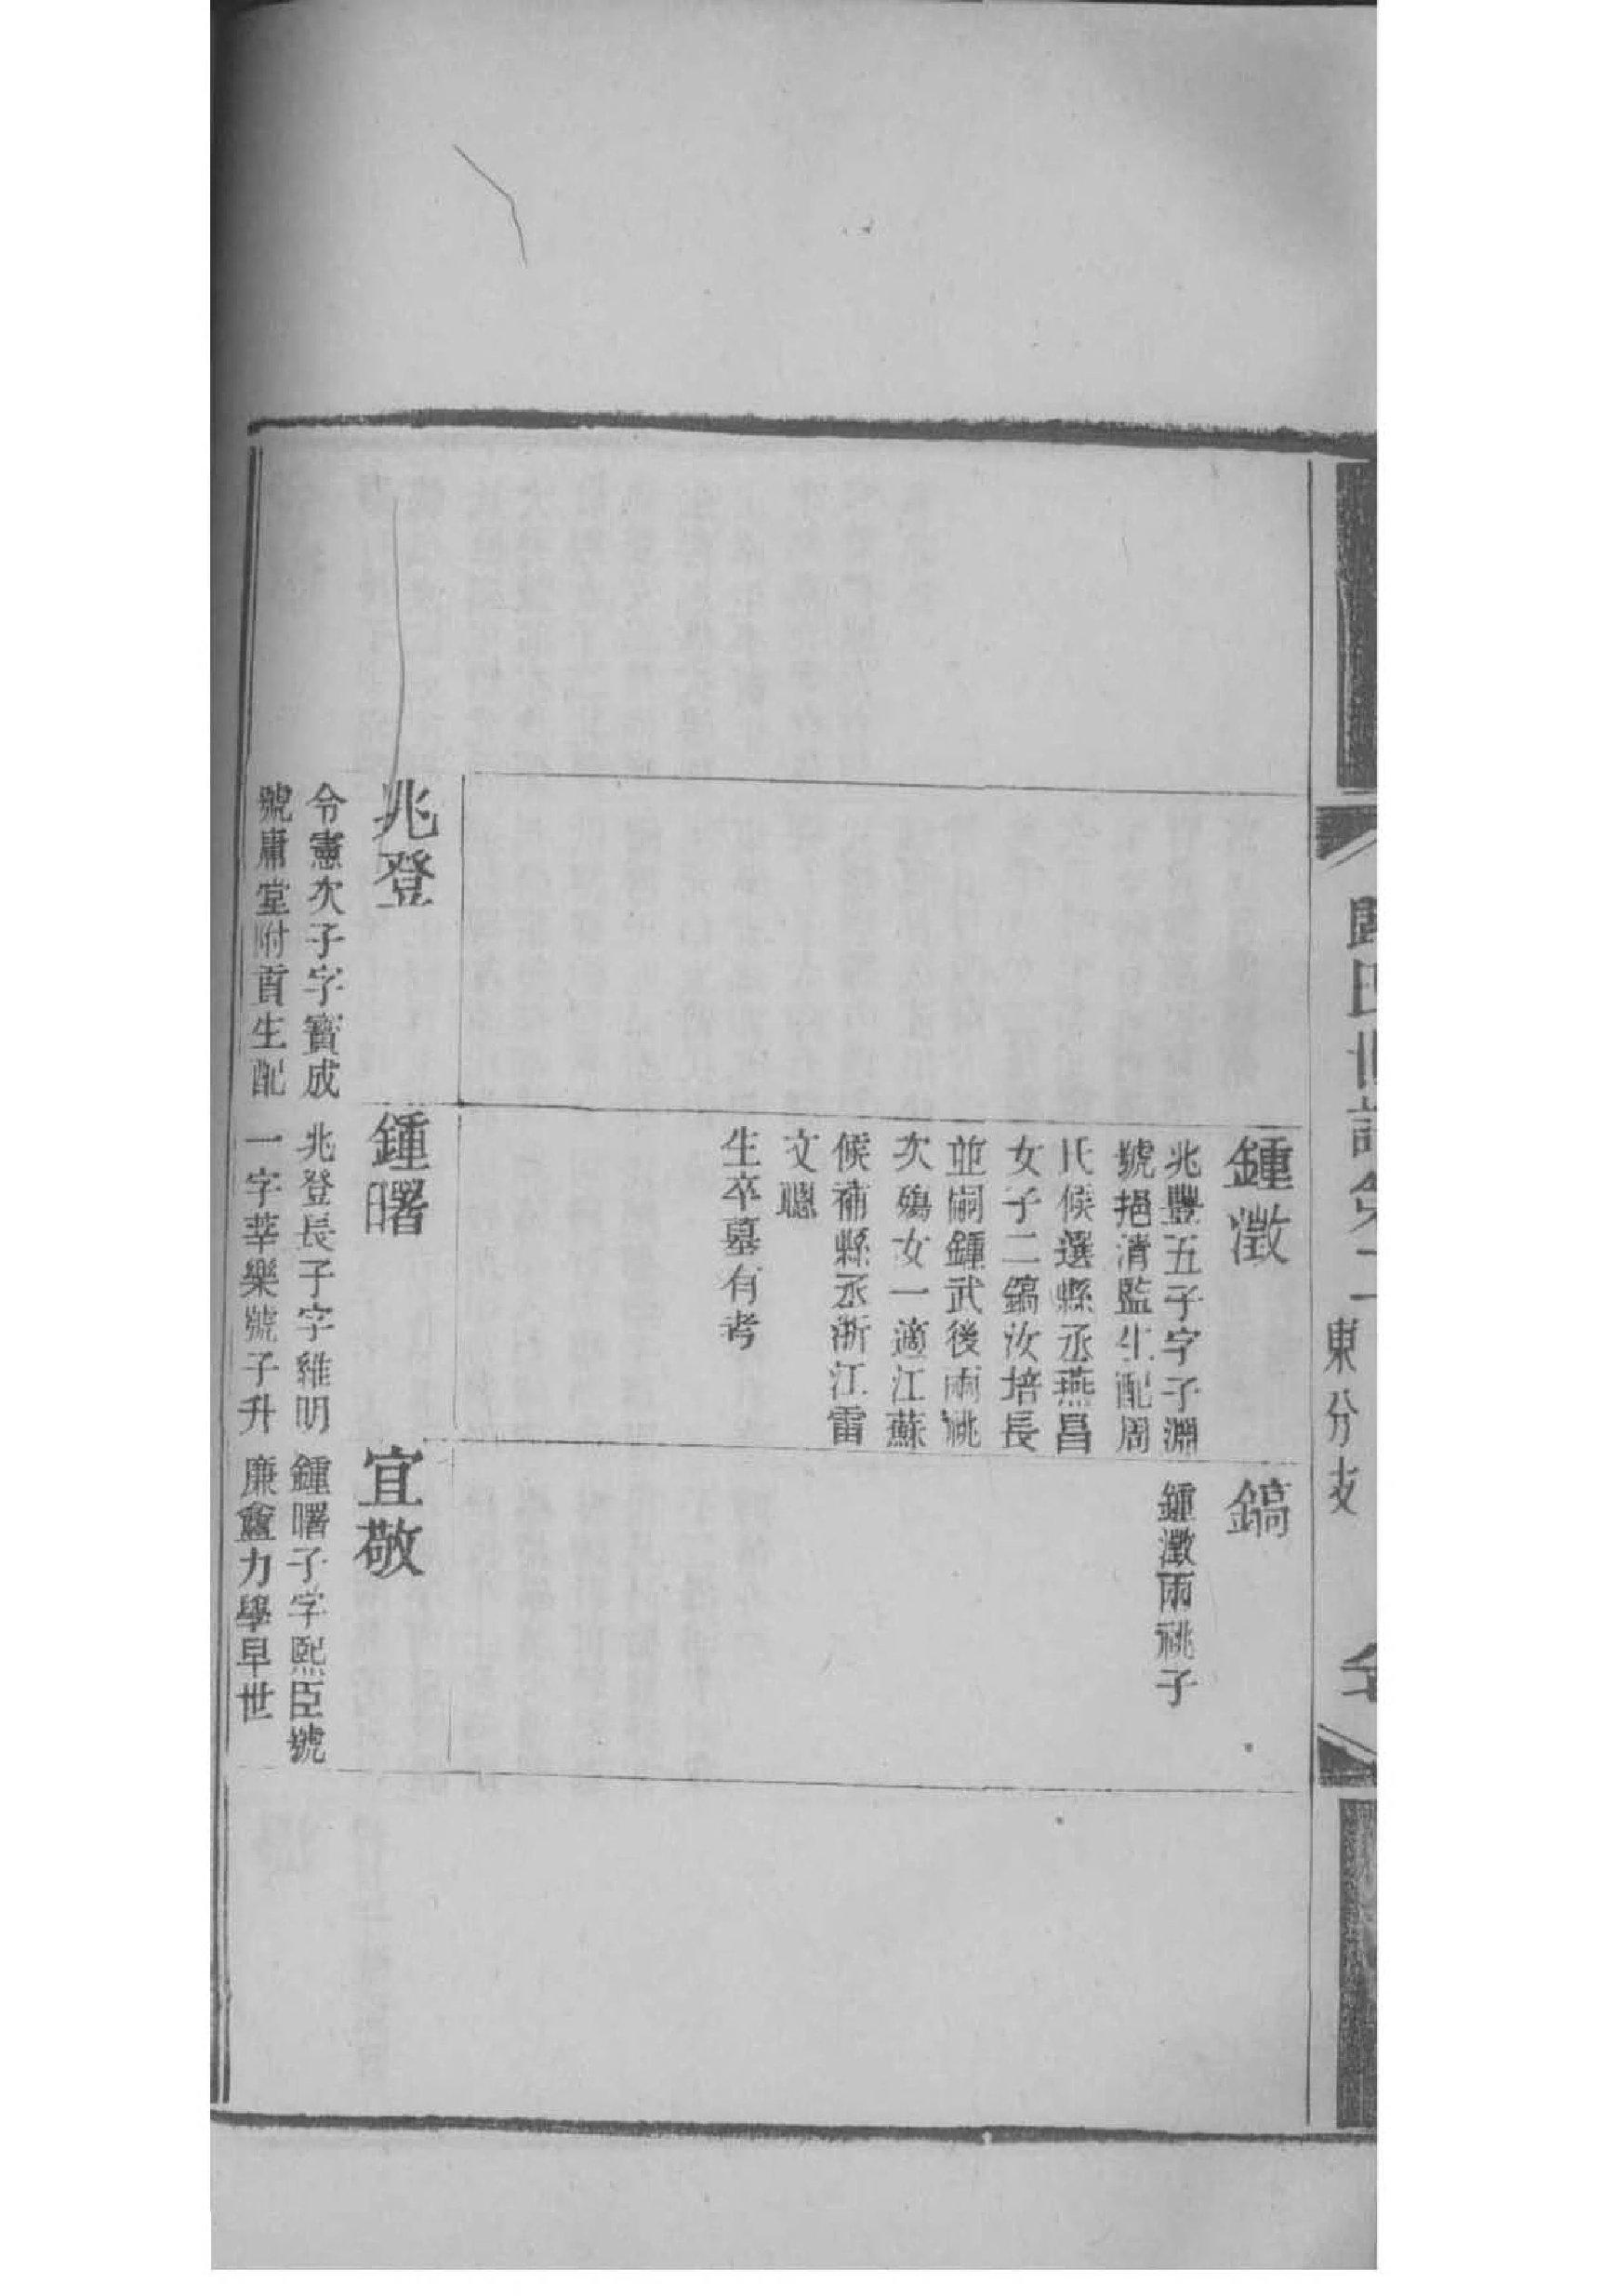 東分支
鍾澂
兆豐五子字子淵
號挹清監生配周
氏候選縣丞燕昌
女子二鎬汝培長
並嗣鍾武後兩祧
次殤女一適江蘇
候補縣丞浙江雷
文聰
生卒墓有考
鎬
鍾澂兩祧子
兆登
令憲次子字寶成
號庸堂附貢生配
鍾曙
兆登長子字維明
一字莘樂號子升
宜敬
鍾曙子字熙臣號
廉盦力學早世